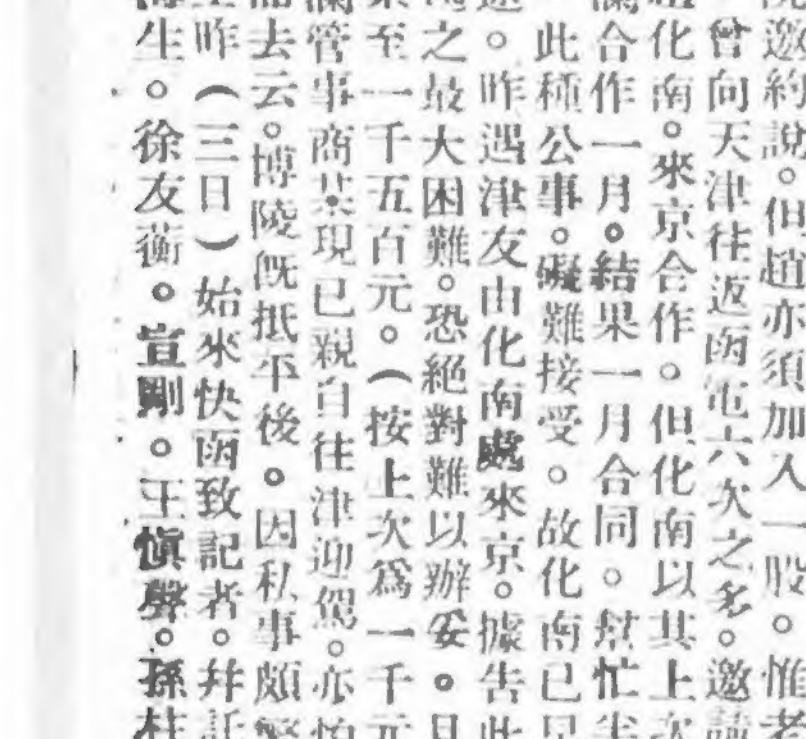 邀約說。但趙亦須加入一股。惟老
曾向天津往返函電六次之多。邀請
化南。來京合作。但化南以其上次
合作一月。結果一月合同。幫忙半
此種公事。礙難接受。故化南已早
。昨遇津友由化南處來京。據告此
之最大困難。恐絕對難以辦妥。且
至一千五百元。(按上次爲一千元
管事商某現已親自往津迎駕。亦怕
去云。博陵旣抵平後。因私事頗繁
昨(三日)始來快函致記者。幷託
生。徐友蘅。宣剛。王愼聲。孫桂